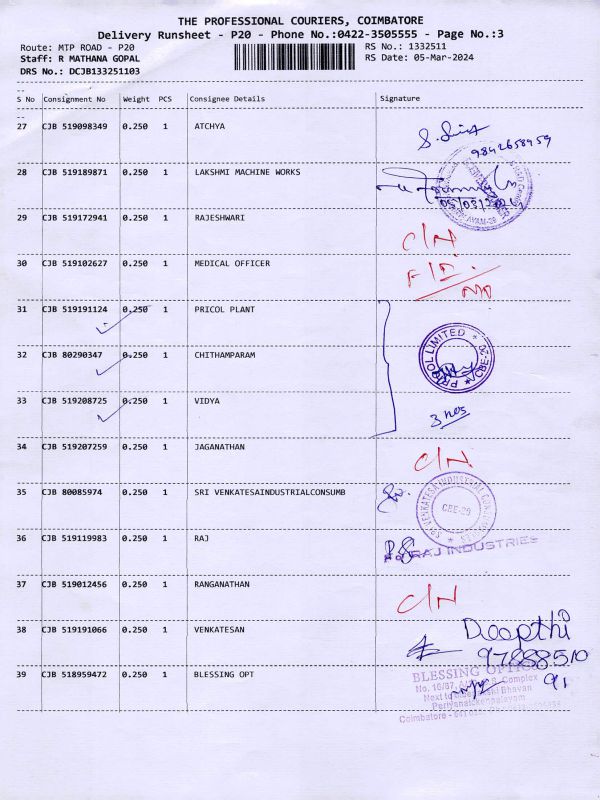 THE PROFESSIONAL COURIERS, COIMBATORE
Delivery Runsheet - P20 - Phone No.:0422-3505555 - Page No.:3
Route: MTP ROAD - P20 RS No.: 1332511
Staff: R MATHANA GOPAL RS Date: 05-Mar-2024
DRS No.: DCJB133251103
S No Consignment No Weight PCS Consignee Details Signature
27 CJB 519098349 0.250 1 ATCHYA
9842658959
28 CJB 519189871 0.250 1 LAKSHMI MACHINE WORKS
29 CJB 519172941 0.250 1 RAJESHWARI C/N
30 CJB 519102627 0.250 1 MEDICAL OFFICER
31 CJB 519191124 0.250 1 PRICOL PLANT
32 CJB 80290347 0.250 1 CHITHAMPARAM
PRICOL LIMITED CBE-20
33 CJB 519208725 0.250 1 VIDYA
3 nos
34 CJB 519207259 0.250 1 JAGANATHAN C/N
35 CJB 80085974 0.250 1 SRI VENKATESAINDUSTRIALCONSUMB
SRI VENKATESA INDUSTRIAL CBE-20
36 CJB 519119983 0.250 1 RAJ
RAJ INDUSTRIES
37 CJB 519012456 0.250 1 RANGANATHAN C/N
38 CJB 519191066 0.250 1 VENKATESAN Deepthi
97888510
91
39 CJB 518959472 0.250 1 BLESSING OPT
BLESSING
Complex
Next to Bhavan
Periyanaickenpalayam
Coimbatore - 641